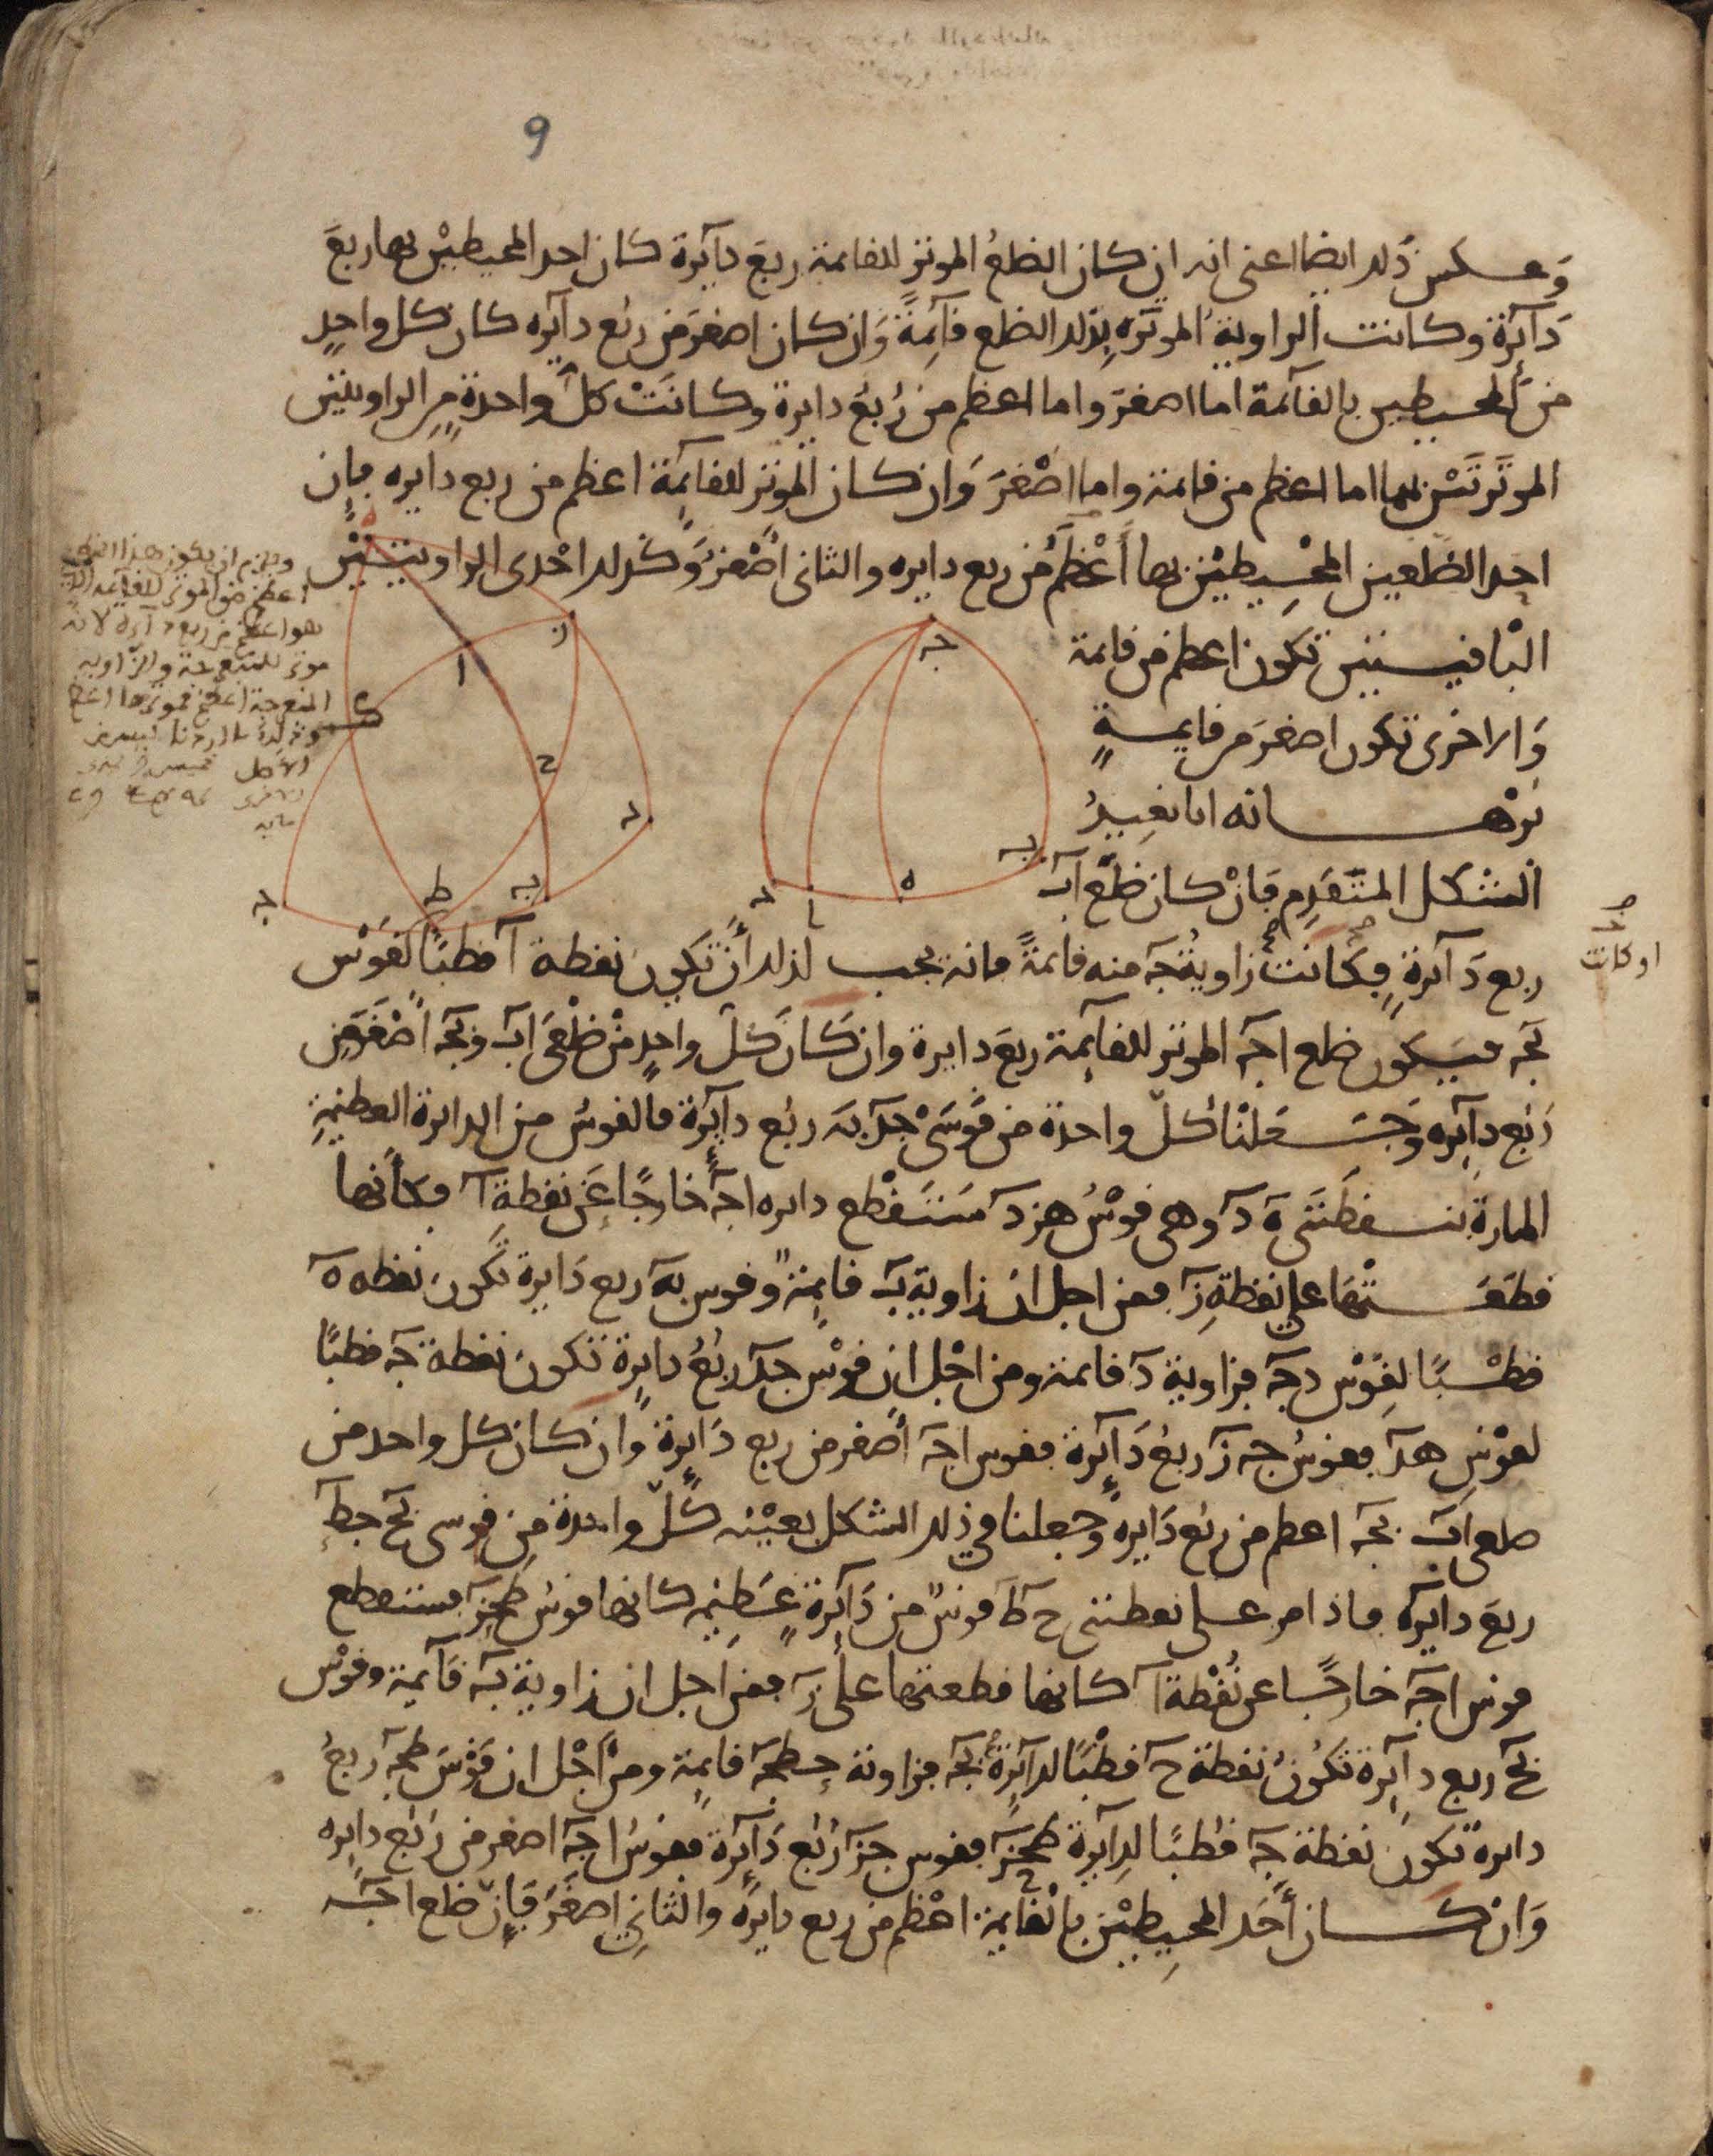 9
وعكس ذلك ايضا اعني انه ان كان الضلع الموتر للقائمة ربع دائرة كان احد المحيطين بها ربع
دآئرة وكانت الزاوية الموترة بذلك الضلع قآئمة وان كان اصغر من ربع دآئره كان كل واحد
من المحيطين بالقآئمة اما اصغر واما اعظم من ربع دايرة وكانت كل واحدة من الزاويتين
الموترتين بهما اما اعظم من قايمة واما اصغر وان كان الموتر للقايمة اعظم من ربع دايره فان
احد الضلعين المحيطين بها أعظم من ربع دايره والثاني اصغر وكذلك احدى الزاويتين
الباقيتين تكون اعظم من قايمة
والاخرى تكون اصغر من قايمة
برهانه انا نعيد
الشكل المتقدم فان كان ضلع اب
ربع دآئرة فكانت زاوية بجه منه قايمة فانه يجب لذلك أن تكون نقطة آ قطبا لقوس
بجه فيكون ضلع اجه الموتر للقآئمة ربع دايرة وان كان كل واحد من ضلعي اب وبجه اصغر من
ربع دآئره وجعلنا كل واحدة من قوسي جد به ربع دايرة فالقوس من الدايرة العظيمة
المارة بنقطتي ه د وهي قوس هزد ستقطع دايره اجه خارجا عن نقطة آ فكأنها
قطعتها على نقطة ز فمن اجل ان زاوية ب قايمة وقوس به ربع دايرة تكون نقطه ه
قطبا لقوس دجه فزاوية د قايمة ومن اجل ان قوس جد ربع دايرة تكون نقطة جه قطبا
لقوس هد فقوس جه ز ربع دآئرة فقوس اجه أصغر من ربع دايرة وان كان كل واحد من
ضلعي اب بجه اعظم من ربع دايره وجعلنا في ذلك الشكل بعينه كل واحدة من قوسي بح جط
ربع دايره فاذا مر على نقطتي ح ط قوس من دآئرة عظيمه كانها قوس طحز فستقطع
قوس اجه خارجا عن نقطة آ كانها قطعتها على ز فمن اجل ان زاوية ب قآئمة وقوس
بح ربع دايرة تكون نقطة ح قطبا لدآئرة بجه فزاوية حطجه قايمة ومن اجل ان قوس طجه ربع
دايرة تكون نقطة جه قطبا لدآئرة طحز فقوس جز ربع دآئرة فقوس اجه اصغر من ربع دايره
وان كان أحد المحيطين بالقايمة اعظم من ربع دايرة والثاني اصغر فان ضلع اجه
او كانت
ويلزم ان يكون هذا
اعظم من الموتر للقآئمه
هو اعظم من ربع دآئرة لانه
موتر للمنفرجة والزاويه
المنفرجة اعظم فموترها اعظم
ه
ز
ا
ح
د
ب
ط
جه
جه
ب
ه
ا
د